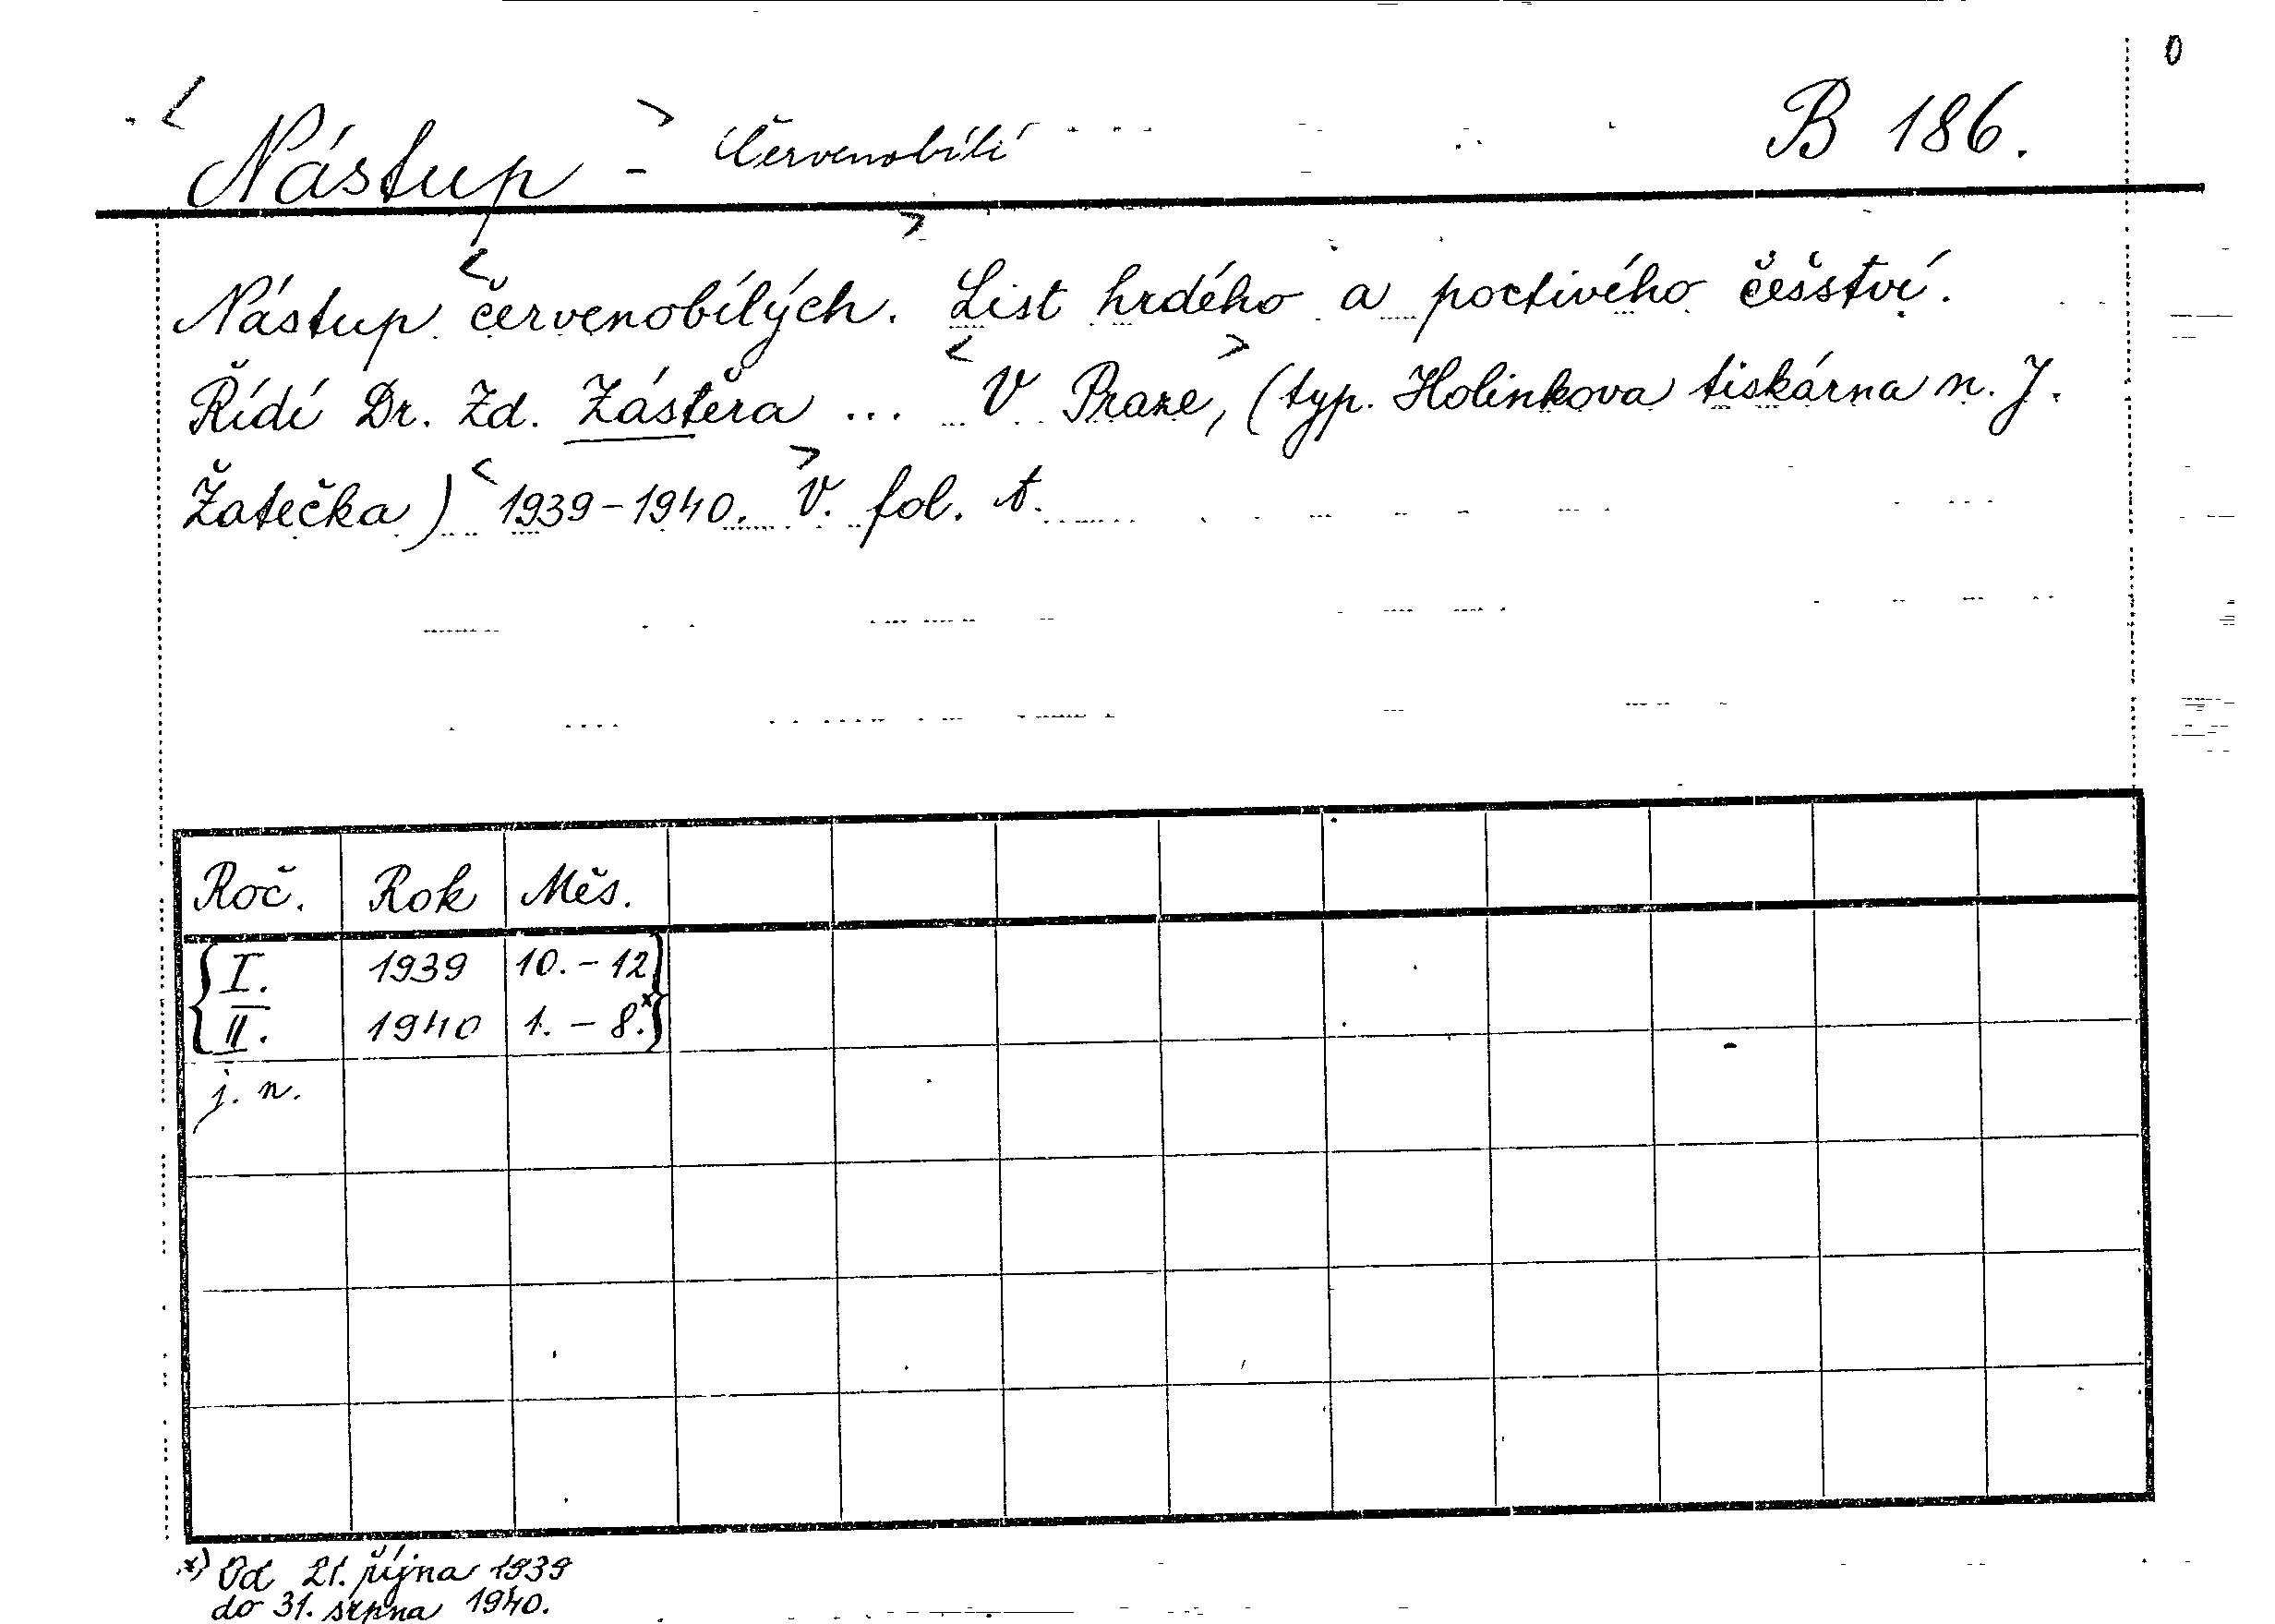 0
< Nástup > - Červenobílí B 186.
Nástup < červenobílých. > List hrdého a poctivého češství.
Řídí Dr. Zd. Zástěra ... < V Praze, > (typ. Holinkova tiskárna n. J.
Žatečka) < 1939-1940. > V. fol. t.
Roč. Rok Měs.
{ I. 1939 10. - 12 }
{ II. 1940 1. - 8. x }
j. n.
x) Od 21. října 1939
do 31. srpna 1940.